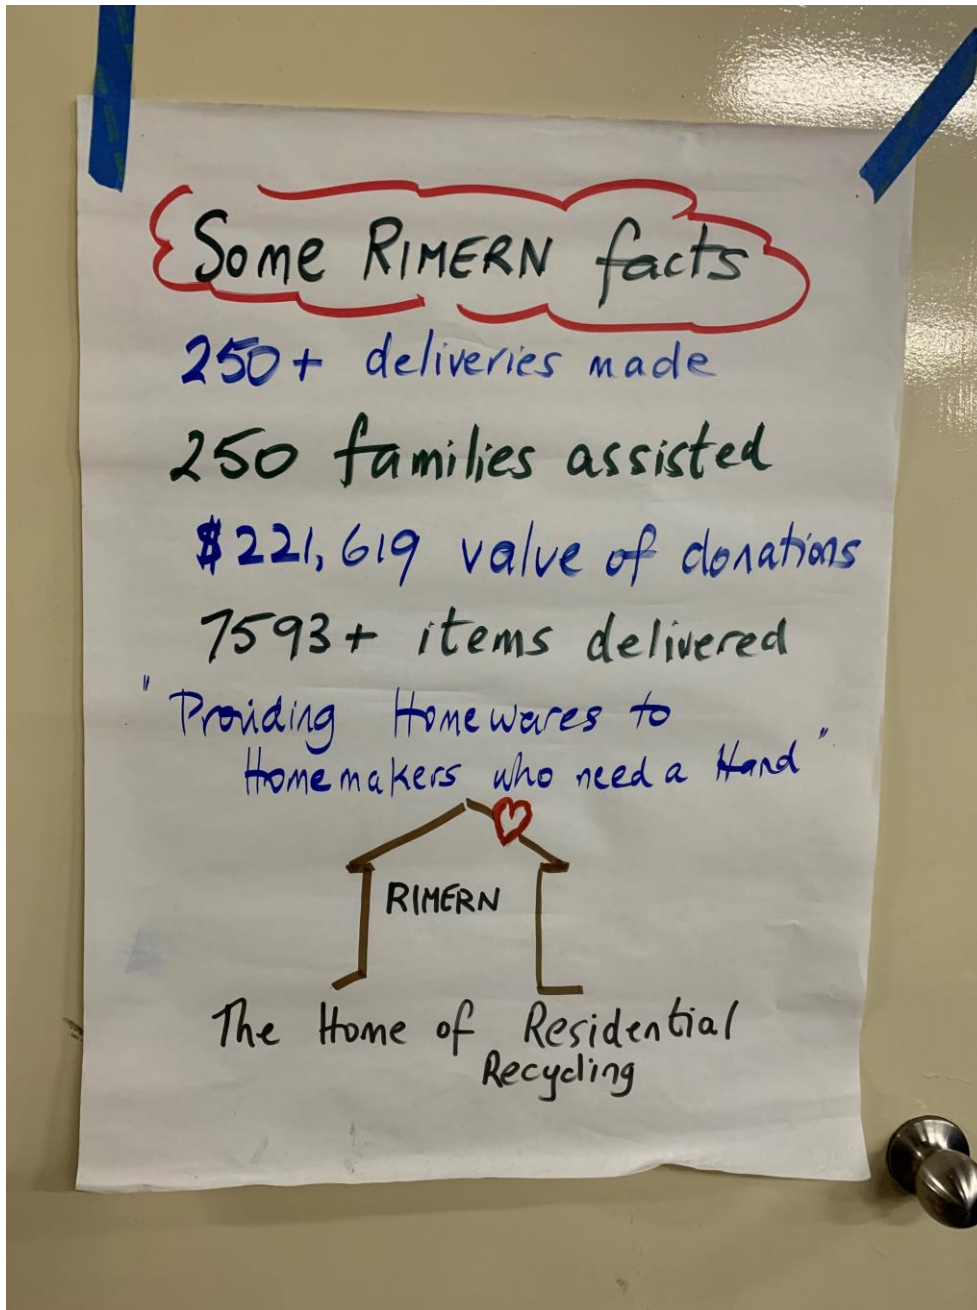 Some RIMERN facts
250+ deliveries made
250 families assisted
$221,619 value of donations
7593+ items delivered
"Providing Homewares to
Homemakers who need a Hand"
RIMERN
The Home of Residential
Recycling